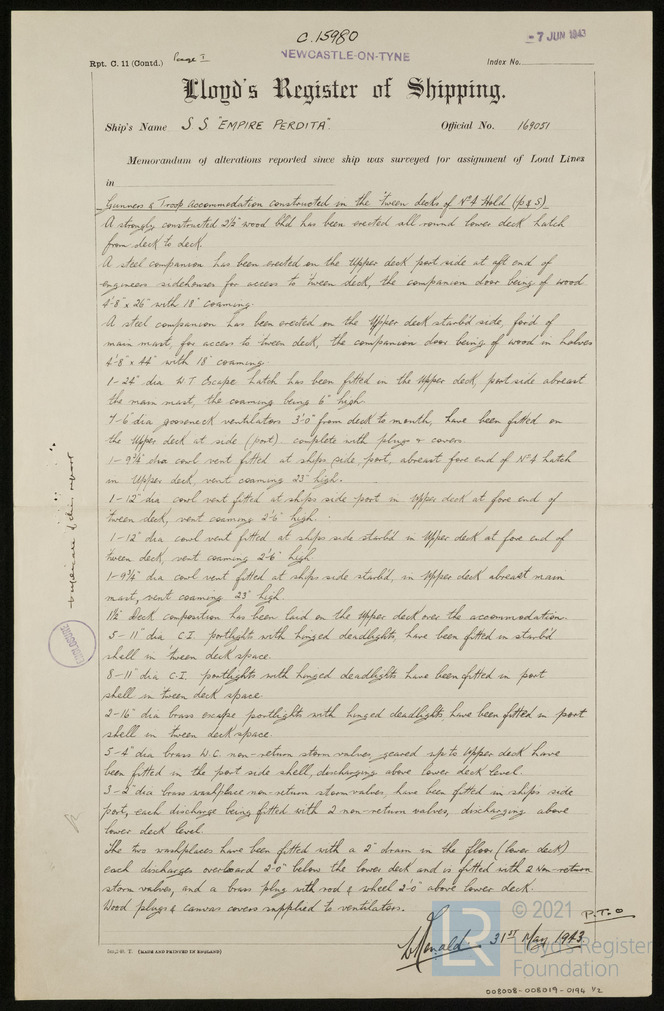 C.15980
-7 JUN 1943
NEWCASTLE-ON-TYNE
Rpt. C. 11 (Contd.) Page 1
Index No.
Lloyd's Register of Shipping.
Ship's Name S S "EMPIRE PERDITA" Official No. 169051
Memorandum of alterations reported since ship was surveyed for assignment of Load Lines
in
Gunners & Troop Accommodation constructed in the 'tween decks of No 4 Hold (p & s)
A strongly constructed 2½" wood bhd has been erected all round lower deck hatch
from deck to deck.
A steel companion has been erected on the Upper deck port side at aft end of
engineers sidehouses for access to 'tween deck, the companion door being of wood
4'-8" x 26" with 18" coaming.
A steel companion has been erected on the Upper deck starb'd side, for'd of
main mast, for access to 'tween deck, the companion door being of wood in halves
4'-8" x 44" with 18" coaming.
1-24" dia W.T. Escape hatch has been fitted in the Upper deck, port side abreast
the main mast, the coaming being 6" high.
7-6" dia gooseneck ventilators 3'-0" from deck to mouth, have been fitted on
the Upper deck at side (port) complete with plugs & covers.
1-9¾" dia cowl vent fitted at ships side port, abreast fore end of No 4 hatch
in Upper deck, vent coaming 23" high.
1-12" dia cowl vent fitted at ships side-port in Upper deck at fore end of
'tween deck, vent coaming 2'-6" high.
1-12" dia cowl vent fitted at ships side starb'd in Upper deck at fore end of
'tween deck, vent coaming 2'-6" high.
1-9¾" dia cowl vent fitted at ships side starb'd, in Upper deck abreast main
mast, vent coaming 23" high
1½" Deck composition has been laid on the Upper deck over the accommodation.
5-11" dia C.I. portlights with hinged deadlights, have been fitted in starb'd
shell in 'tween deck space.
8-11" dia C.I. portlights with hinged deadlights have been fitted in port
shell in 'tween deck space.
2-16" dia brass escape portlights with hinged deadlights, have been fitted in port
shell in 'tween deck space.
5-4" dia brass W.C. non-return storm valves, geared up to Upper deck have
been fitted in the port side shell, discharging above lower deck level.
3-2" dia brass washplace non-return storm valves, have been fitted in ship's side
port, each discharge being fitted with 2 non-return valves, discharging above
lower deck level.
The two washplaces have been fitted with a 2" drain in the floor (lower deck)
each discharges overboard 2'-0" below the lower deck and is fitted with 2 non-return
storm valves, and a brass plug with rod & wheel 2'-0" above lower deck.
Wood plugs & canvas covers supplied to ventilators.
P.T.O
31st May 1943
(MADE AND PRINTED IN ENGLAND)
LR
© 2021
Lloyd's Register
Foundation
008008-008019-0194 1/2